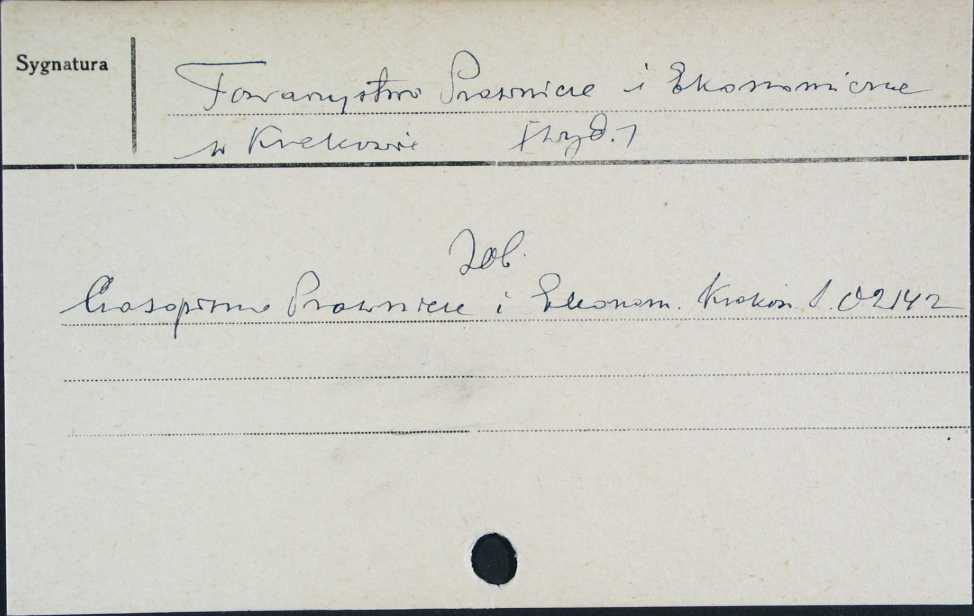 Sygnatura
Towarzystwo Prawnicze i Ekonomiczne
w Krakowie [wyd.]
Zob.
Czasopismo Prawnicze i Ekonom. Kraków S. 02142